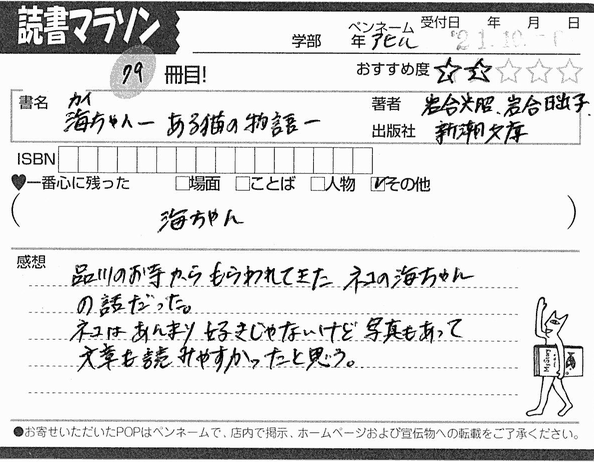 読書マラソン
学部 年 ペンネーム アヒル 受付日 年 月 日
'21.10.-
79 冊目! おすすめ度 ☆☆☆☆☆
書名 カイ 著者 岩合光昭、岩合日出子
海ちゃんー ある猫の物語ー 出版社 新潮文庫
ISBN
♥一番心に残った □場面 □ことば □人物 ☑その他
( 海ちゃん )
感想
品川のお寺からもらわれてきた ネコの海ちゃん
の話だった。
ネコはあんまり好きじゃないけど 写真もあって
文章も読みやすかったと思う。
●お寄せいただいたPOPはペンネームで、店内で掲示、ホームページおよび宣伝物への転載をご了承ください。